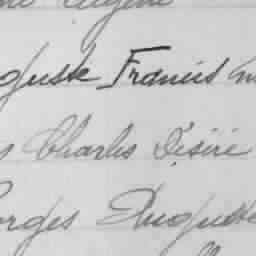 Eugène
guste Francis
Charles Désiré
orges Auguste